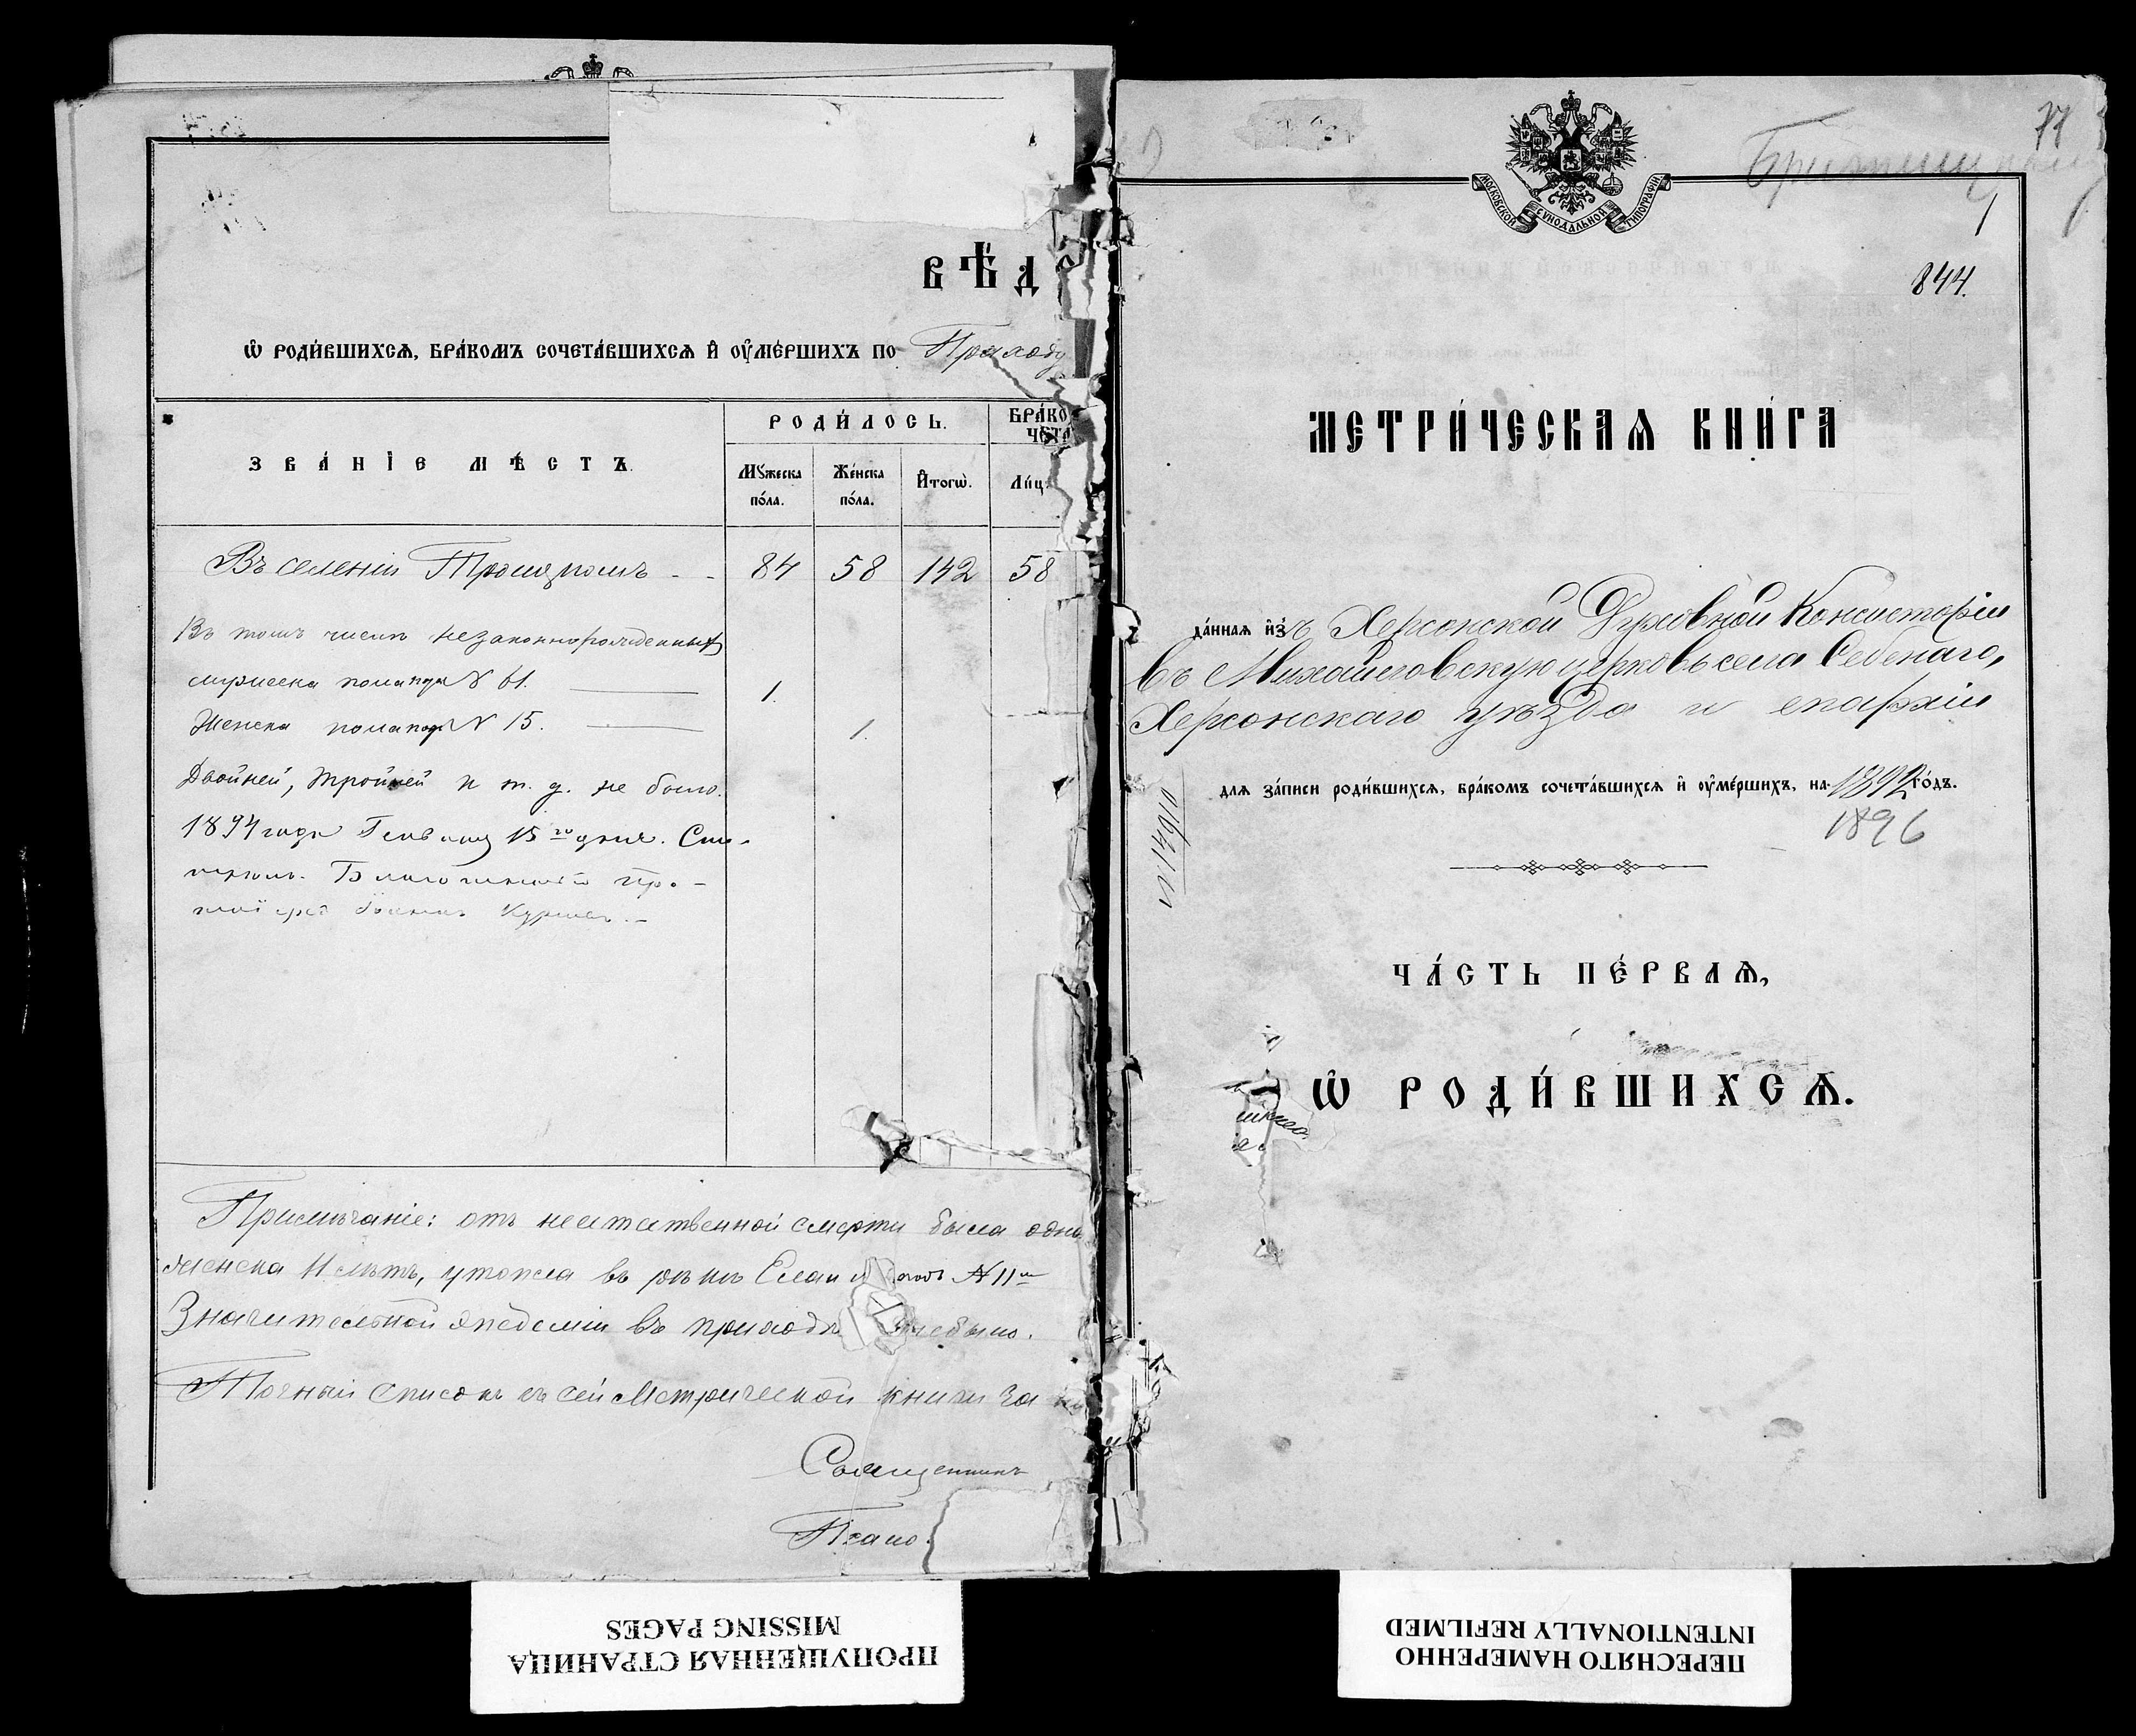 ВѢД
Ѡ РОДИ́ВШИХСѦ, БРА́КОМЪ СОЧЕТА́ВШИХСѦ И҆ ОУ҆МЕ́РШИХЪ ПО Приходу
ЗВА́НІЕ МѢ́СТЪ.
РОДИ́ЛОСЬ.
БРА́КО
ЧЕТА
Мꙋжеска по́ла.
Же́нска по́ла.
И҆тогѡ̀.
Ли́цъ
Въ селеніи Троицкомъ - -
84 58 142 58
Въ томъ числѣ незаконнорожденныхъ
мужеска пола подъ № 61. 1.
Женска пола подъ № 15. 1.
Двойней, тройней и т. д. не было.
1894 года Генваря 15го дня.
Благочинный Про-
тоіерей Іоаннъ
Примѣчаніе: отъ неестественной смерти была одна
женска 11 лѣтъ, утопла въ рѣкѣ подъ № 11мъ
Значительной эпедеміи въ приходѣ не было.
Точный списокъ съ сей Метрической книги за
Священникъ
Псало
77
844.
МОСКОВСКОЙ СѴНОДАЛЬНОЙ ТИПОГРАФІИ
МЕТРИ́ЧЕСКАѦ КНИ́ГА
да́ннаѧ и҆зъ Херсонской Духовной Консисторіи
въ Михайловскую церковь села Себенаго,
Херсонскаго уѣзда и епархіи
длѧ за́писи роди́вшихсѧ, бра́комъ сочета́вшихсѧ и҆ оу҆ме́ршихъ, на 1892 го́дъ.
1896
ЧА́СТЬ ПЕ́РВАѦ,
Ѡ РОДИ́ВШИХСѦ.
ПРОПУЩЕННАЯ СТРАНИЦА
MISSING PAGES
ПЕРЕСНЯТО НАМЕРЕННО
INTENTIONALLY REFILMED